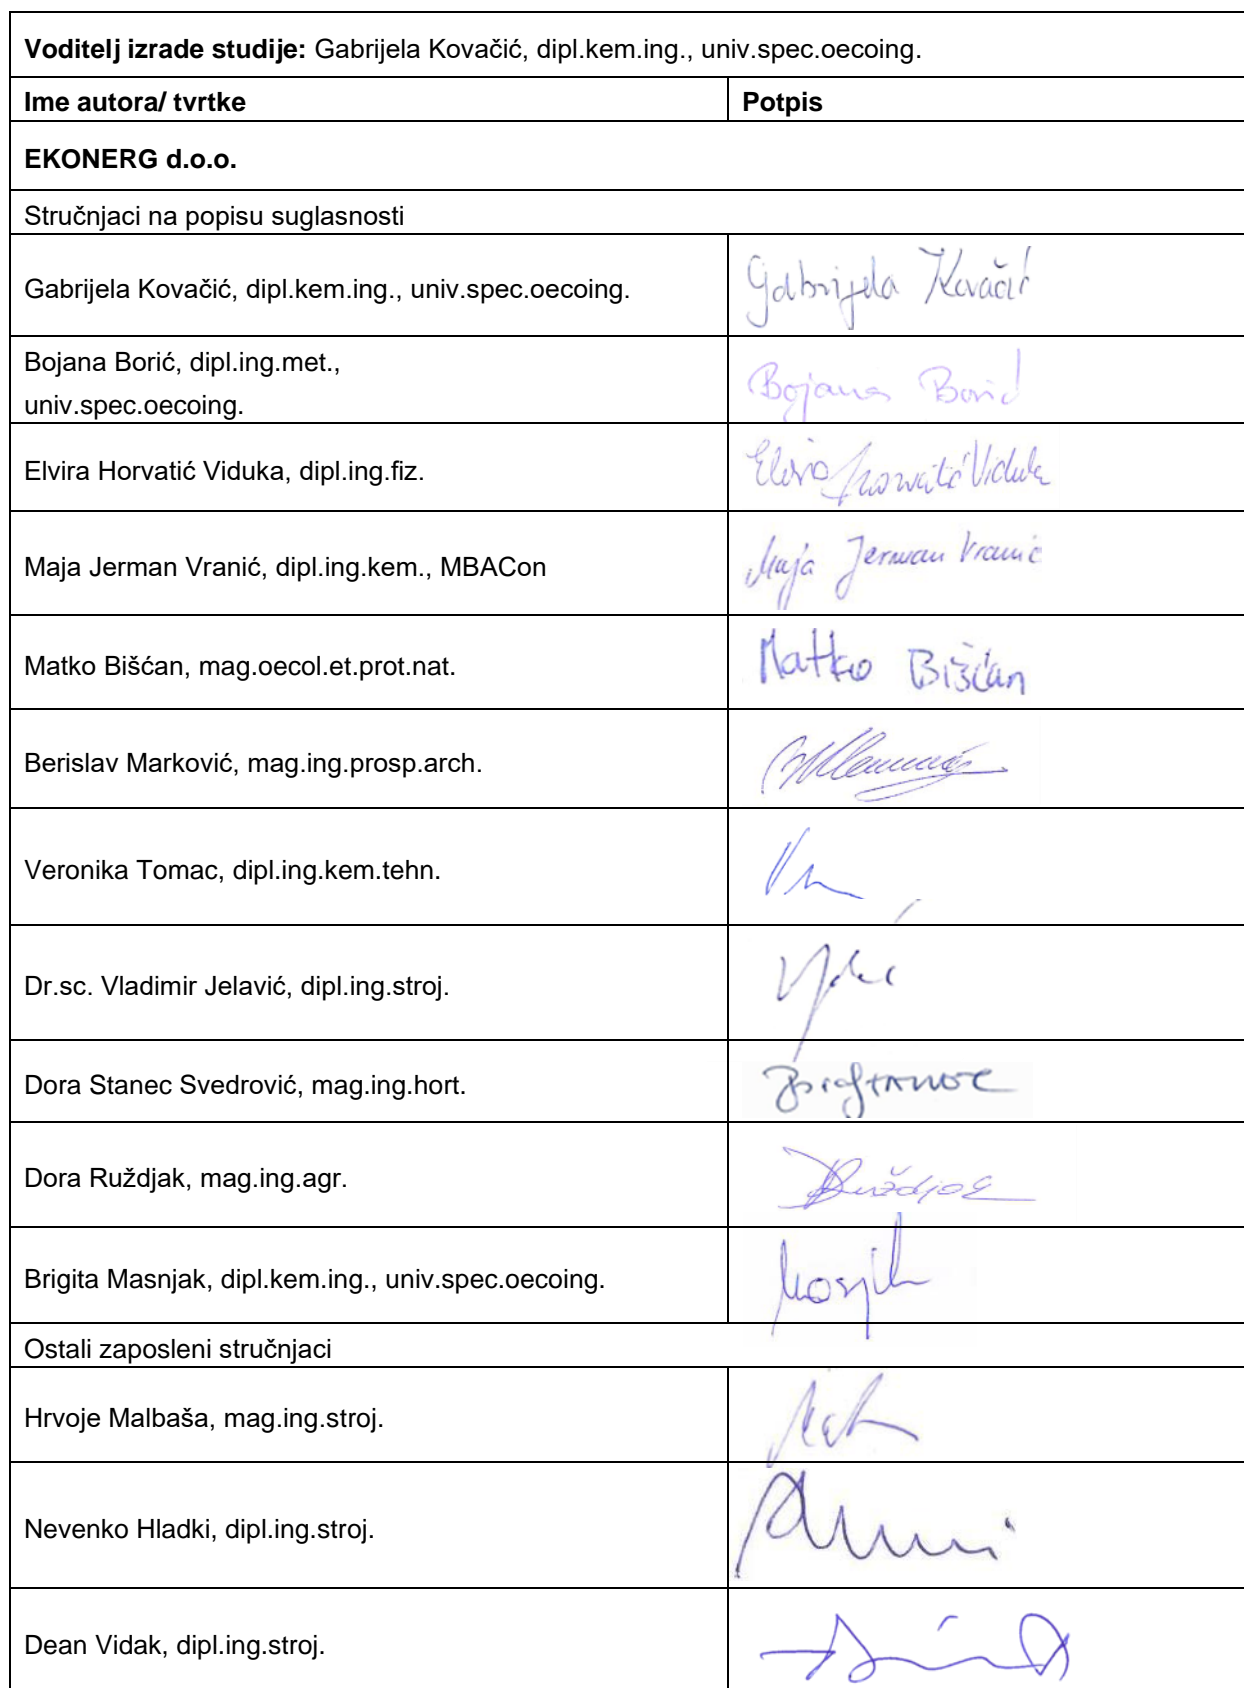 Voditelj izrade studije: Gabrijela Kovačić, dipl.kem.ing., univ.spec.oecoing.
Ime autora/ tvrtke Potpis
EKONERG d.o.o.
Stručnjaci na popisu suglasnosti
Gabrijela Kovačić, dipl.kem.ing., univ.spec.oecoing. Gabrijela Kovačić
Bojana Borić, dipl.ing.met., Bojana Borić
univ.spec.oecoing.
Elvira Horvatić Viduka, dipl.ing.fiz. Elvira Horvatić Viduka
Maja Jerman Vranić, dipl.ing.kem., MBACon Maja Jerman Vranić
Matko Bišćan, mag.oecol.et.prot.nat. Matko Bišćan
Berislav Marković, mag.ing.prosp.arch.
Veronika Tomac, dipl.ing.kem.tehn.
Dr.sc. Vladimir Jelavić, dipl.ing.stroj.
Dora Stanec Svedrović, mag.ing.hort.
Dora Ruždjak, mag.ing.agr. Ruždjak
Brigita Masnjak, dipl.kem.ing., univ.spec.oecoing.
Ostali zaposleni stručnjaci
Hrvoje Malbaša, mag.ing.stroj.
Nevenko Hladki, dipl.ing.stroj.
Dean Vidak, dipl.ing.stroj.